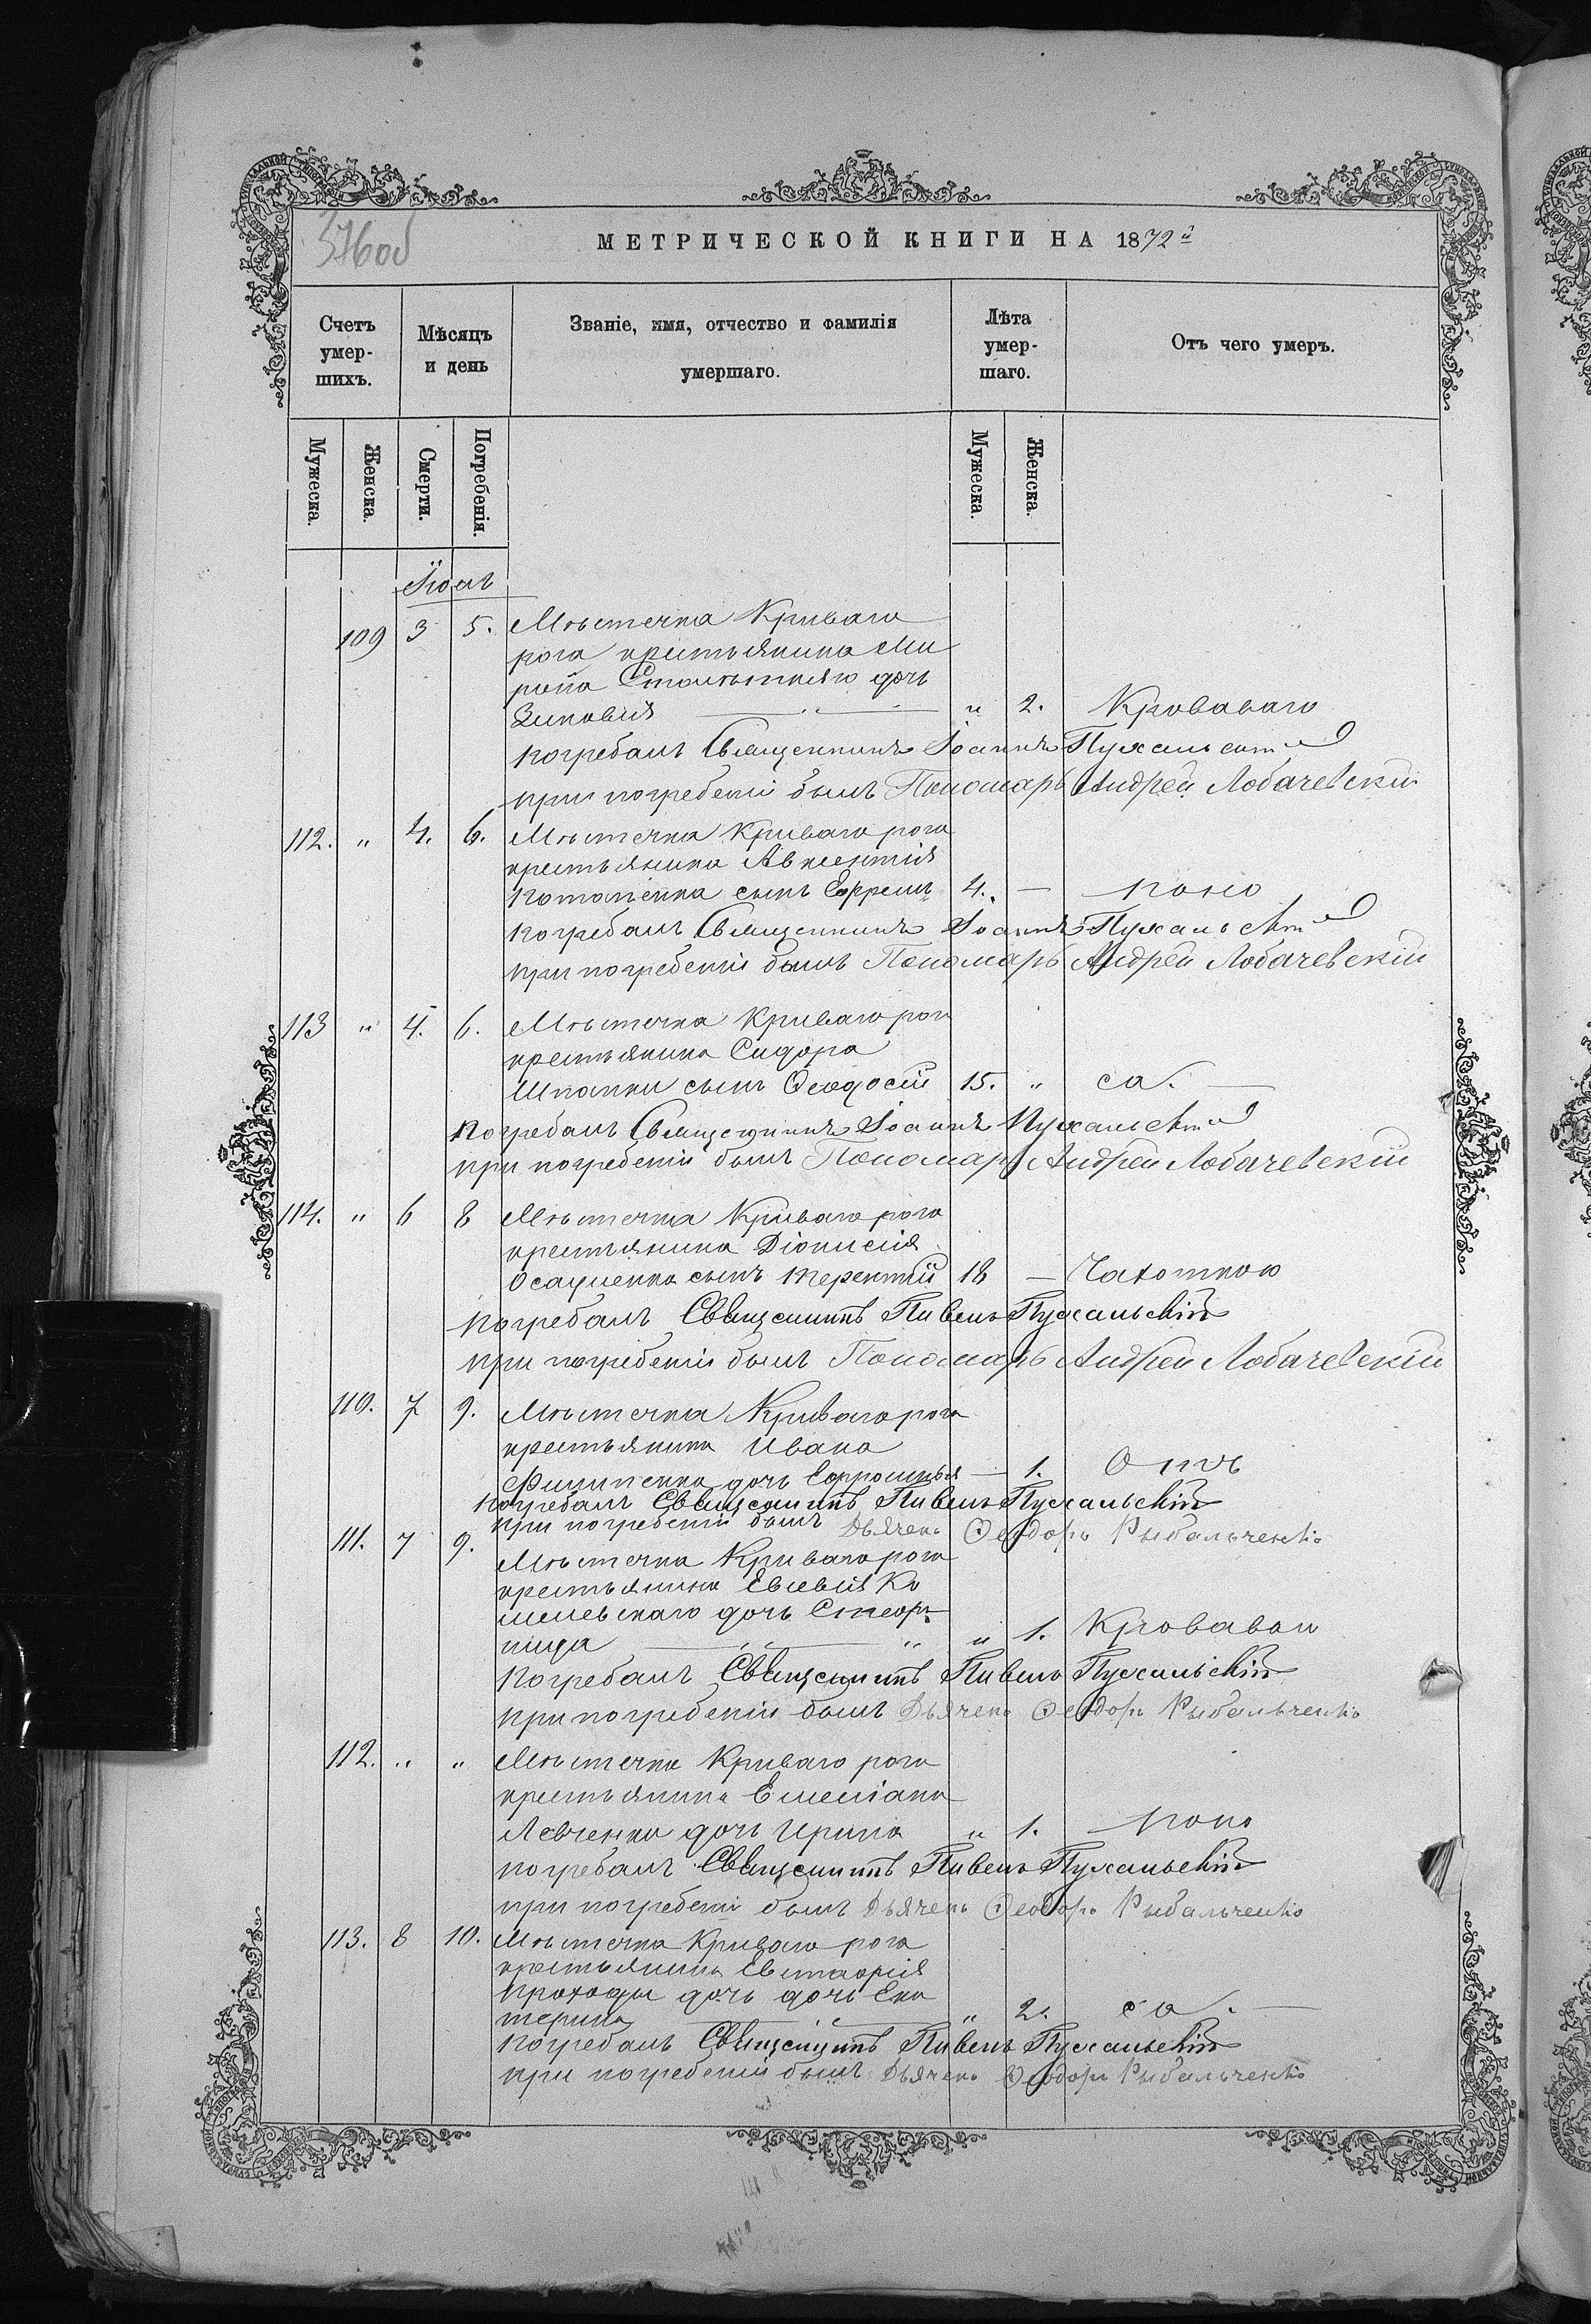 376об
МЕТРИЧЕСКОЙ КНИГИ НА 1872й
Счетъ умер-шихъ.
Мѣсяцъ и день
Званіе, имя, отчество и фамилія умершаго.
Лѣта умер-шаго.
Отъ чего умеръ.
Мужеска.
Женска.
Смерти.
Погребенія.
Мужеска.
Женска.
109 3 5. Мѣстечка Криваго
рога крестьянина Ми
рона дочь
Зиновія " 2. Кроваваго
погребалъ Священникъ Іоаннъ Пухальскій
при погребеніи былъ Пономарь Андрей Лобачевскій
112. " 4. 6. Мѣстечка Криваго рога
крестьянина Авксентія
Потапенка сынъ Ефремъ 4. —
погребалъ Священникъ Іоаннъ Пухальскій
при погребеніи былъ Пономарь Андрей Лобачевскій
113 " 4. 6. Мѣстечка Криваго рога
крестьянина Сидора
Шпатки сынъ Ѳеодосій 15. "
Погребалъ Священникъ Іоаннъ Пухальскій
при погребеніи былъ Пономарь Андрей Лобачевскій
114. " 6 8 Мѣстечка Криваго рога
крестьянина Діонисія
Осауленка сынъ Терентій 18 — Чахоткою
Погребалъ Священникъ Павелъ Пухальскій
при погребеніи былъ Пономарь Андрей Лобачевскій
110. 7 9. Мѣстечка Криваго рога
крестьянина Ивана
Филипенка дочь Ефросинья — 1.
погребалъ Священникъ Павелъ Пухальскій
при погребеніи былъ Дьячекъ Ѳеодоръ Рыбальченко
111. 7 9.
Мѣстечка Криваго рога
крестьянина Евсевія Ко
дочь
нида " 1. Кровавой
Погребалъ Священникъ Павелъ Пухальскій
при погребеніи былъ Дьячекъ Ѳеодоръ Рыбальченко
112. " " Мѣстечка Криваго рога
крестьянина Емеліана
Левченка дочь Ирина " 1.
погребалъ Священникъ Павелъ Пухальскій
при погребеніи былъ Дьячекъ Ѳеодоръ Рыбальченко
113. 8 10. Мѣстечка Криваго рога
крестьянина Евстафія
Проходы дочь дочь Ека
терина " 2.
Погребалъ Священникъ Павелъ Пухальскій
при погребеніи былъ Дьячекъ Ѳеодоръ Рыбальченко